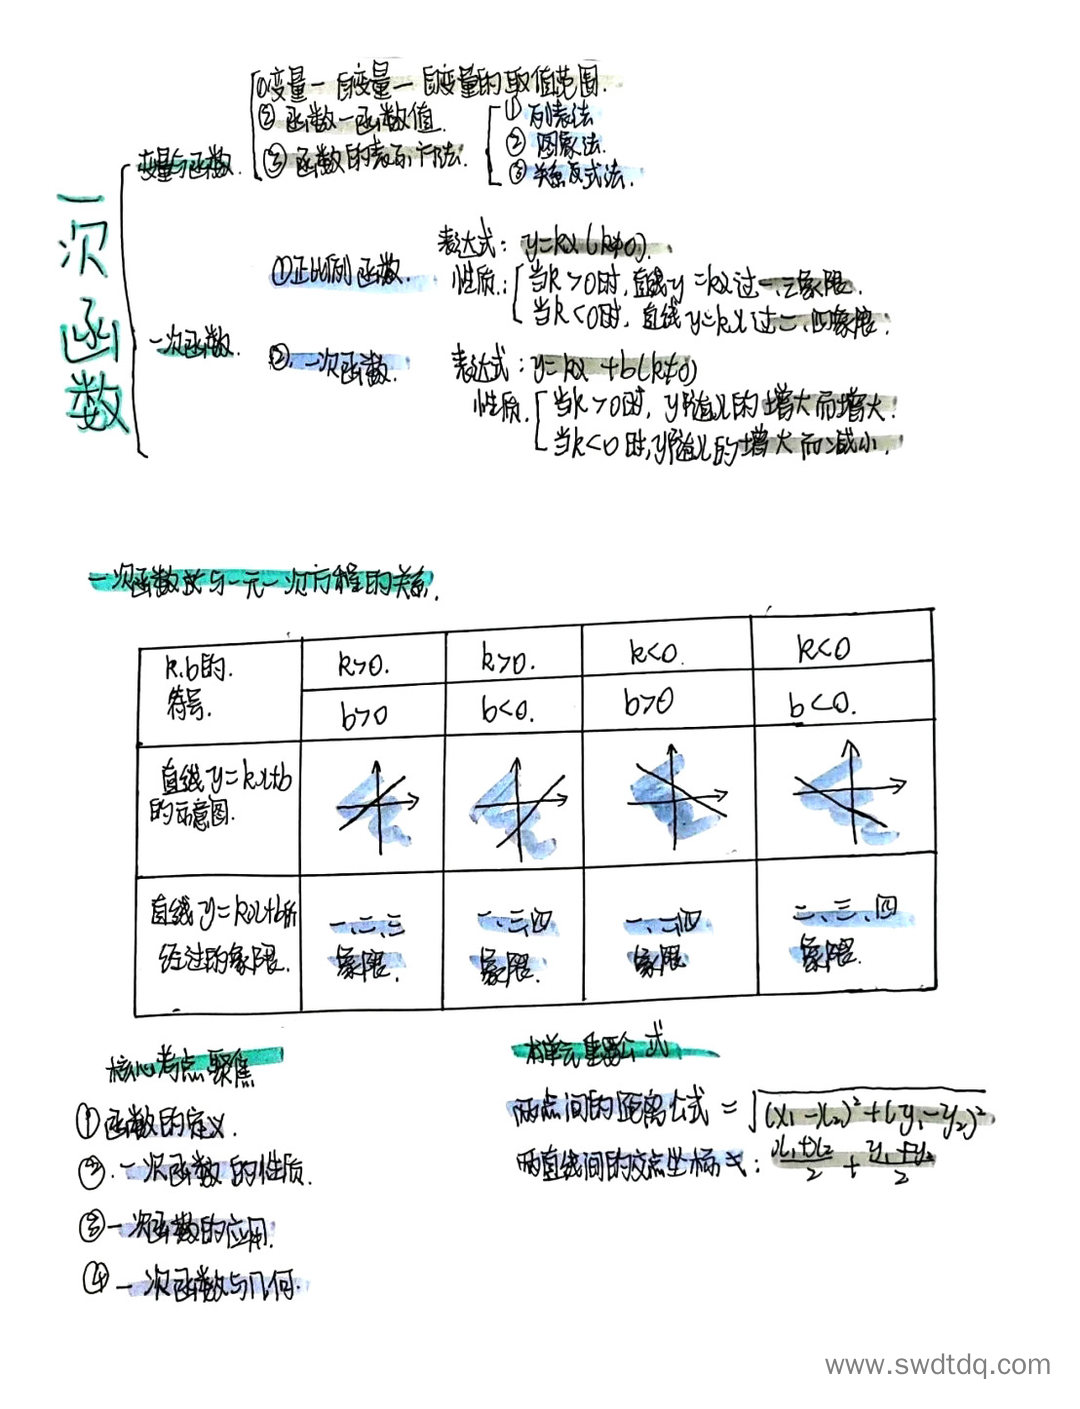 一次函数
变量与函数.
①变量一自变量一自变量的取值范围.
②函数一函数值.
③函数的表示方法.
①列表法
②图象法.
③关系式法.
一次函数.
①正比例函数.
表达式: y=kx(k≠0).
性质:
当k>0时,直线y=kx过一、三象限.
当k<0时,直线y=kx过二、四象限.
②.一次函数.
表达式:y=kx+b(k≠0)
性质.
当k>0时,y随x的增大而增大.
当k<0时,y随x的增大而减小.
一次函数与一元一次方程的关系.
k.b的.符号.
k>0. k>0. k<0. k<0
b>0 b<0. b>0 b<0.
直线y=kx+b
的示意图.
直线y=kx+b所
经过的象限.
一、二、三象限.
一、三、四象限.
一、二、四象限
二、三、四象限.
核心考点聚焦
①函数的定义.
②.一次函数的性质.
③一次函数的应用.
④一次函数与几何.
本单元重要公式
两点间的距离公式=√(x₁-x₂)²+(y₁-y₂)²
两直线间的交点坐标式: x₁+x₂/2 + y₁+y₂/2
www.swdtdq.com